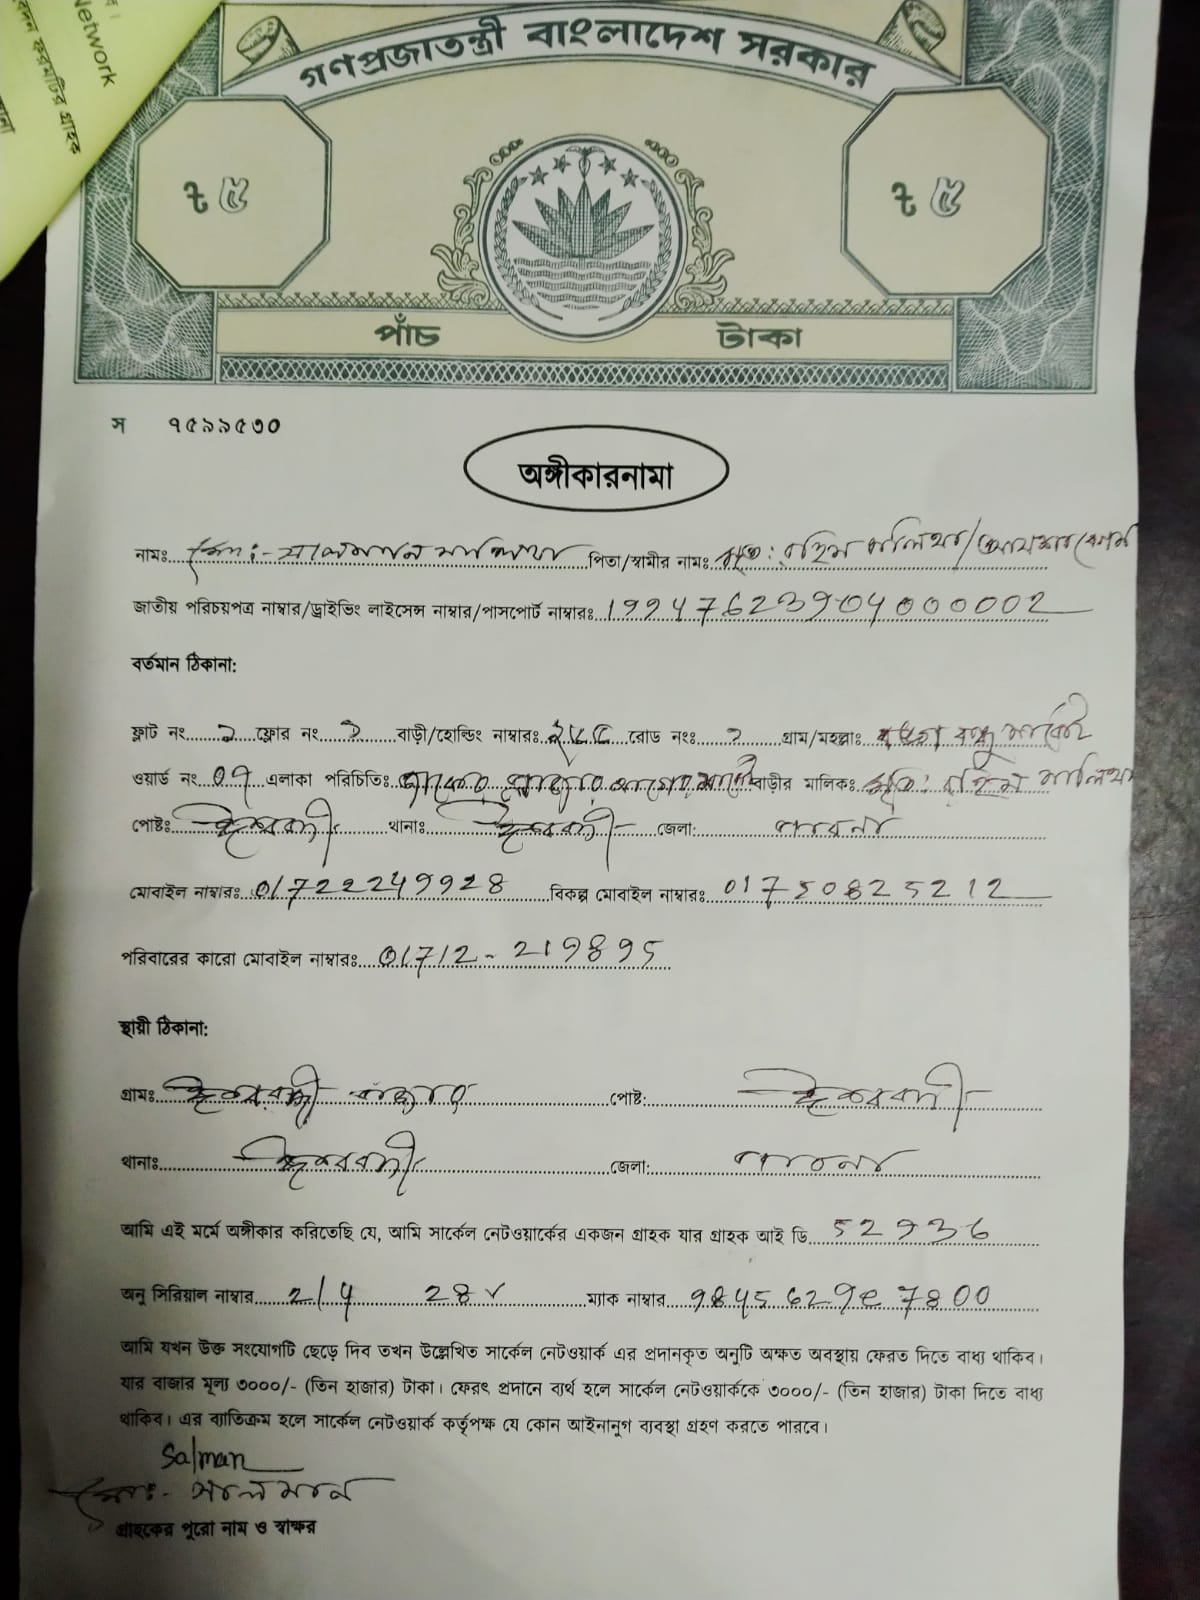 Network
বেদন ফরমটির গ্রাহক
গণপ্রজাতন্ত্রী বাংলাদেশ সরকার
৳ ৫ ৳ ৫
পাঁচ টাকা
স ৭৫৯৯৫৩০
অঙ্গীকারনামা
নামঃ মোঃ- সালমান মালিথা পিতা/স্বামীর নামঃ মৃত: রহিম মালিথা/
জাতীয় পরিচয়পত্র নাম্বার/ড্রাইভিং লাইসেন্স নাম্বার/পাসপোর্ট নাম্বারঃ 19947623904000002
বর্তমান ঠিকানা:
ফ্লাট নং ফ্লোর নং বাড়ী/হোল্ডিং নাম্বারঃ রোড নংঃ গ্রাম/মহল্লাঃ
ওয়ার্ড নং 07 এলাকা পরিচিতিঃ বাড়ীর মালিকঃ মৃত: রহিম মালিথা
পোষ্টঃ ঈশ্বরদী থানাঃ ঈশ্বরদী জেলা: পাবনা
মোবাইল নাম্বারঃ 01722249928 বিকল্প মোবাইল নাম্বারঃ 01750825212
পরিবারের কারো মোবাইল নাম্বারঃ 01712-219895
স্থায়ী ঠিকানা:
গ্রামঃ ঈশ্বরদী বাজার পোষ্ট: ঈশ্বরদী
থানাঃ ঈশ্বরদী জেলা: পাবনা
আমি এই মর্মে অঙ্গীকার করিতেছি যে, আমি সার্কেল নেটওয়ার্কের একজন গ্রাহক যার গ্রাহক আই ডি 52936
অনু সিরিয়াল নাম্বার 2/4 28 ম্যাক নাম্বার 9845629e7800
আমি যখন উক্ত সংযোগটি ছেড়ে দিব তখন উল্লেখিত সার্কেল নেটওয়ার্ক এর প্রদানকৃত অনুটি অক্ষত অবস্থায় ফেরত দিতে বাধ্য থাকিব।
যার বাজার মূল্য ৩০০০/- (তিন হাজার) টাকা। ফেরৎ প্রদানে ব্যর্থ হলে সার্কেল নেটওয়ার্ককে ৩০০০/- (তিন হাজার) টাকা দিতে বাধ্য
থাকিব। এর ব্যাতিক্রম হলে সার্কেল নেটওয়ার্ক কর্তৃপক্ষ যে কোন আইনানুগ ব্যবস্থা গ্রহণ করতে পারবে।
Salman
মোঃ- সালমান
গ্রাহকের পুরো নাম ও স্বাক্ষর